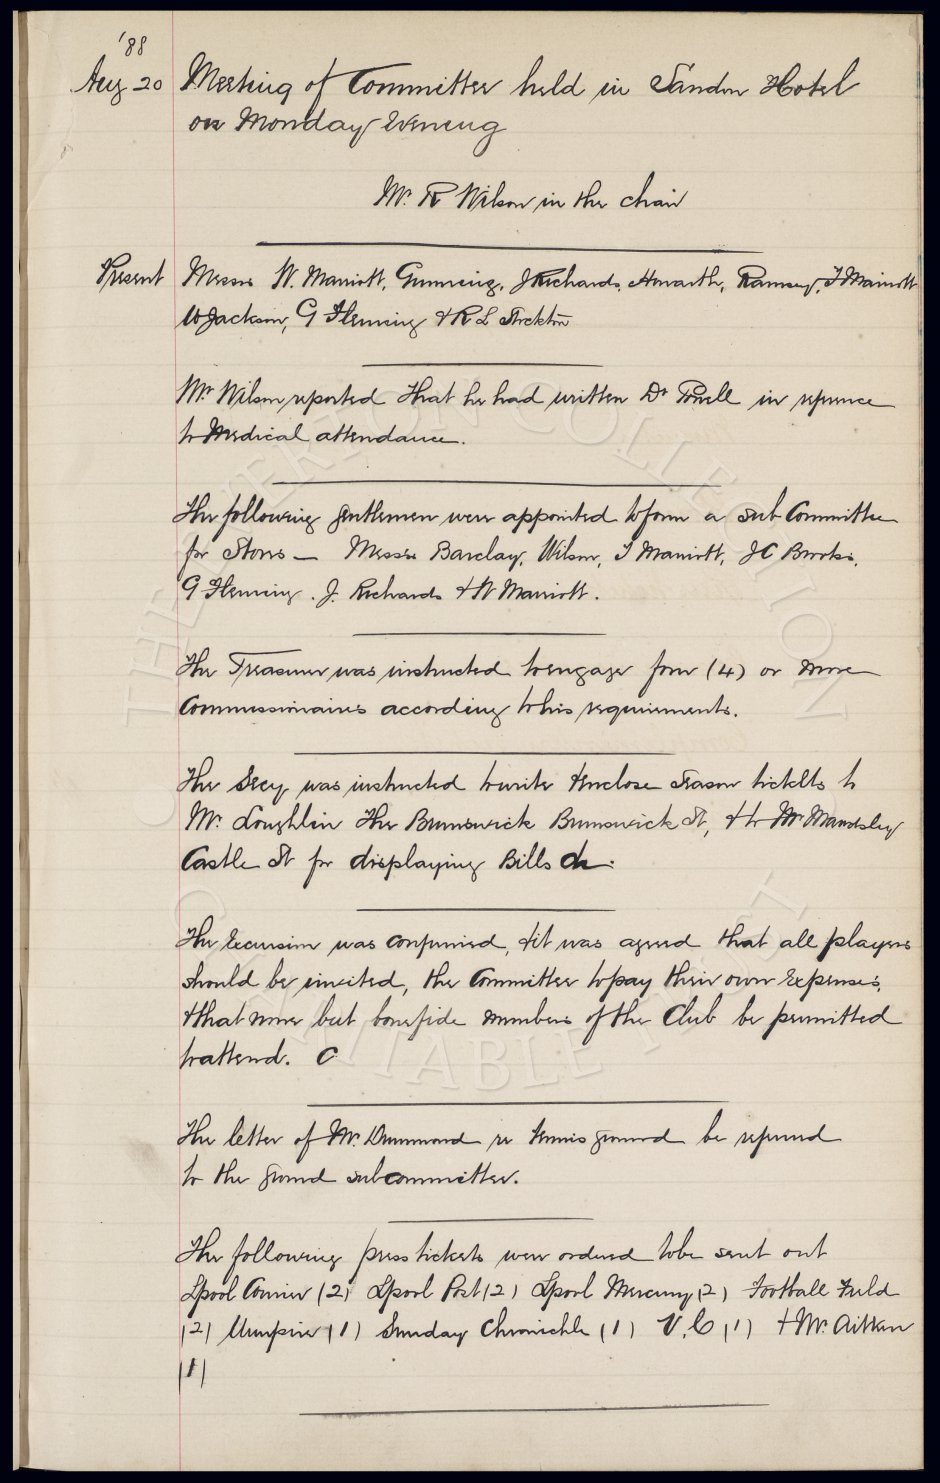 '88
Aug 20 Meeting of Committee held in Sandon Hotel
on Monday Evening
Mr. R Wilson in the chair
Present Messrs W. Marriott, Gunning, J Richards, Howarth, Ramsay, T Marriott
W Jackson, G Fleming & R L Stockton
Mr Wilson reported that he had written Dr Powell in reference
to Medical attendance.
The following gentlemen were appointed to form a sub Committee
for Stores — Messrs Barclay, Wilson, T Marriott, J C Brooks,
G Fleming. J. Richards & W Marriott.
The Treasurer was instructed to engage four (4) or more
Commissionaires according to his requirements.
The Secy was instructed to write & enclose season tickets to
Mr. Loughlin The Brunswick Brunswick St, & to Mr Mandsley
Castle St for displaying Bills &c.
The Excursion was confirmed, & it was agreed that all players
should be invited, the Committee to pay their own Expenses,
& that none but bonefide members of the Club be permitted
to attend. C
The letter of Mr. Drummond re tennis ground be referred
to the ground subcommittee.
The following press tickets were ordered to be sent out
Lpool Courier (2) Lpool Post (2) Lpool Mercury (2) Football Field
(2) Umpire (1) Sunday Chronichle (1) V. C (1) & Mr. Aitken
(1)
THE EVERTON COLLECTION
CHARITABLE TRUST